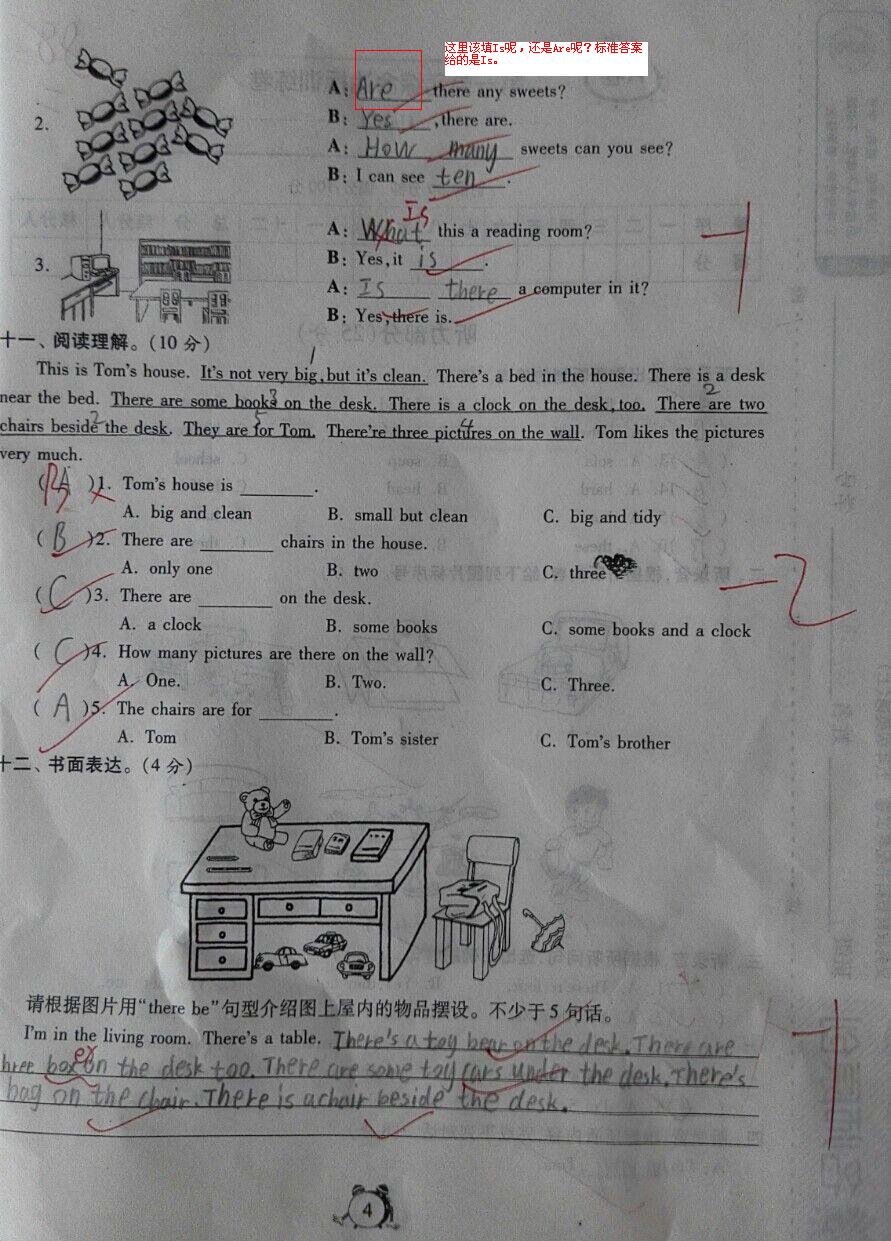 这里该填Is呢，还是Are呢？标准答案
给的是Is。
A: Are there any sweets?
2.
B: Yes, there are.
A: How many sweets can you see?
B: I can see ten.
Is
A: What this a reading room?
3.
B: Yes, it is.
A: Is there a computer in it?
B: Yes, there is.
十一、阅读理解。(10 分)
This is Tom's house. It's not very big, but it's clean. There's a bed in the house. There is a desk
near the bed. There are some books on the desk. There is a clock on the desk, too. There are two
chairs beside the desk. They are for Tom. There're three pictures on the wall. Tom likes the pictures
very much.
( BA )1. Tom's house is ________.
A. big and clean B. small but clean C. big and tidy
( B )2. There are ________ chairs in the house.
A. only one B. two C. three
( C )3. There are ________ on the desk.
A. a clock B. some books C. some books and a clock
( C )4. How many pictures are there on the wall?
A. One. B. Two. C. Three.
( A )5. The chairs are for ________.
A. Tom B. Tom's sister C. Tom's brother
十二、书面表达。(4 分)
请根据图片用“there be”句型介绍图上屋内的物品摆设。不少于 5 句话。
I'm in the living room. There's a table. There's a toy bear on the desk. There are
hree box es on the desk too. There are some toy cars under the desk. There's
bag on the chair. There is a chair beside the desk.
4